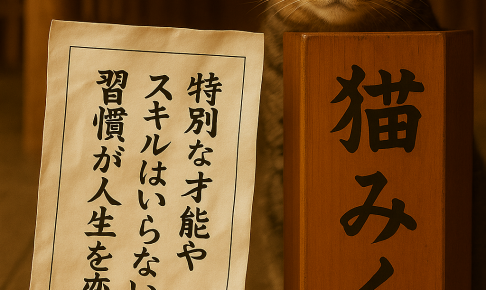 特別な才能や
スキルはいらない
習慣が人生を変
猫みく